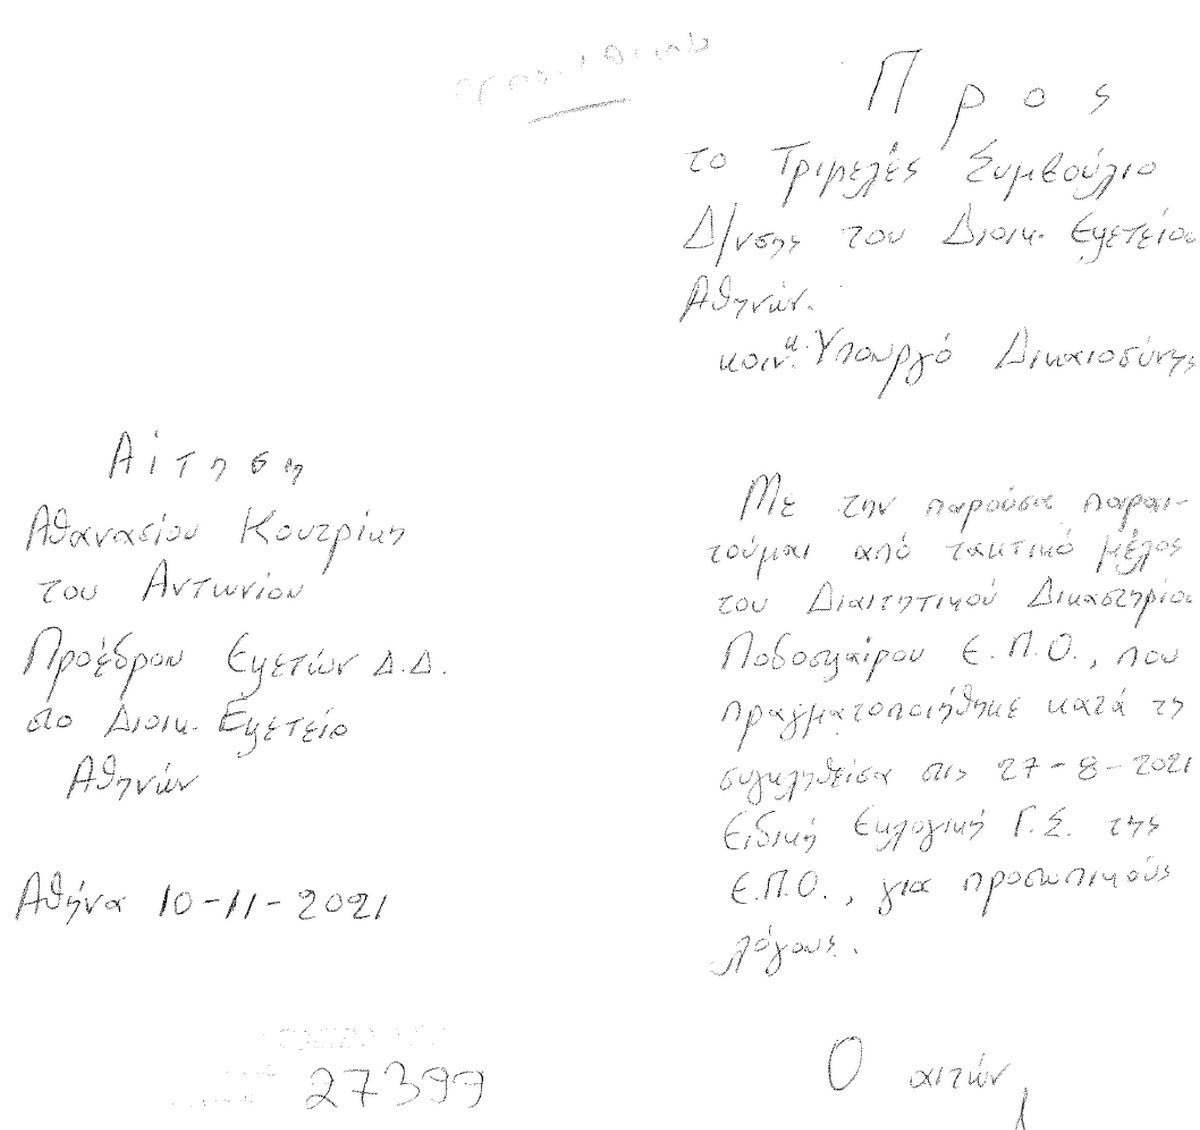 Προς
το Τριμελές Συμβούλιο
Δ/νσης του Διοικ. Εφετείου
Αθηνών.
κοιν. κ. Υπουργό Δικαιοσύνης
Αίτηση
Αθανασίου Κουτρίκη
του Αντωνίου
Προέδρου Εφετών Δ.Δ.
στο Διοικ. Εφετείο
Αθηνών
Αθήνα 10-11-2021
Με την παρούσα παραι-
τούμαι από τακτικό μέλος
του Διαιτητικού Δικαστηρίου
Ποδοσφαίρου Ε.Π.Ο., που
πραγματοποιήθηκε κατά τη
συγκληθείσα στις 27-8-2021
Ειδική Εκλογική Γ.Σ. της
Ε.Π.Ο., για προσωπικούς
λόγους.
27399
Ο αιτών